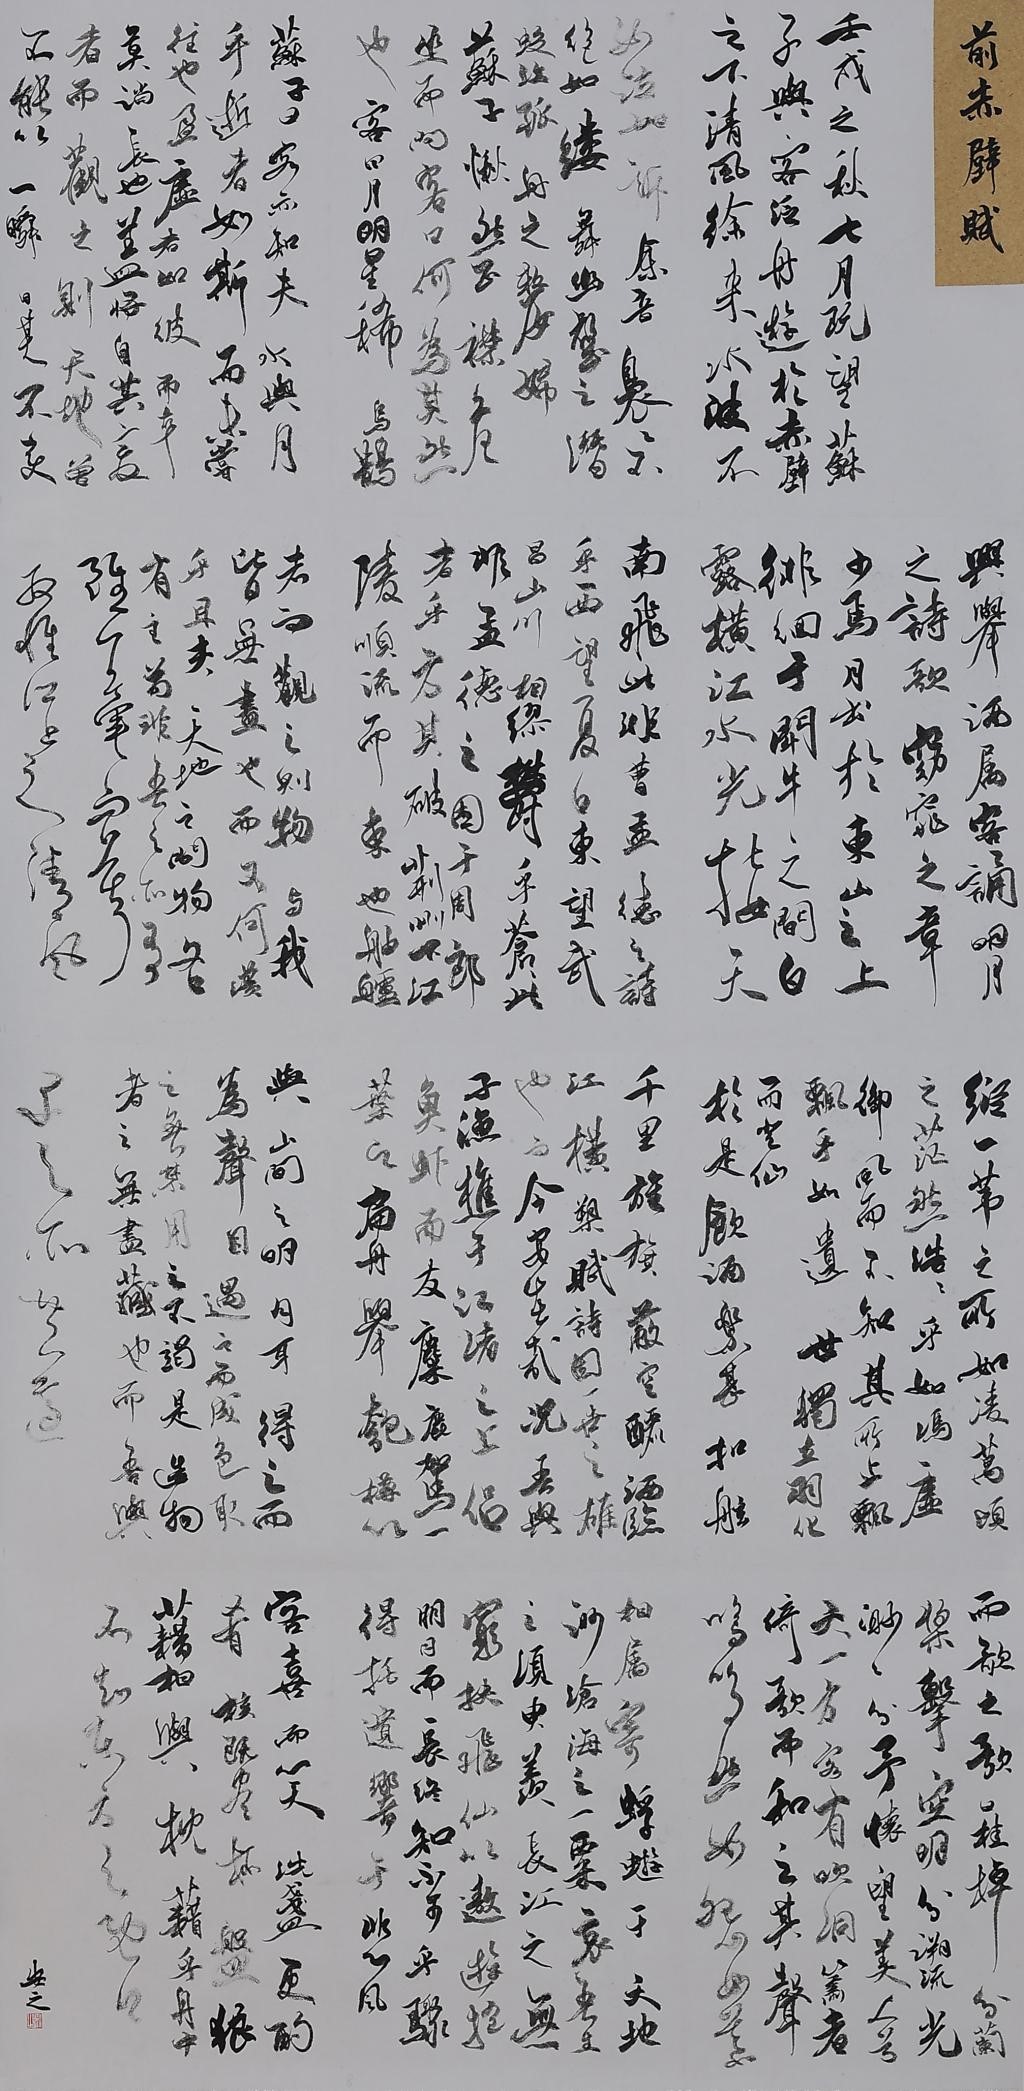 前赤壁賦
壬戌之秋七月既望蘇
子與客泛舟遊於赤壁
之下清風徐來水波不
興舉酒屬客誦明月
之詩歌窈窕之章
少焉月出於東山之上
徘徊于鬥牛之間白
露橫江水光接天
縱一葦之所如凌萬頃
之茫然浩浩乎如馮虛
御風而不知其所止飄
飄乎如遺世獨立羽化
而登仙
於是飲酒樂甚扣舷
而歌之歌曰桂棹兮蘭
槳擊空明兮溯流光
渺渺兮予懷望美人兮
天一方客有吹洞簫者
倚歌而和之其聲
嗚嗚然如怨如慕
如泣如訴餘音裊裊不
絕如縷舞幽壑之潛
蛟泣孤舟之嫠婦
蘇子愀然正襟危
坐而問客曰何為其然
也客曰月明星稀烏鵲
南飛此非曹孟德之詩
乎西望夏口東望武
昌山川相繆鬱乎蒼蒼此
非孟德之困于周郎
者乎方其破荊州下江
陵順流而東也舳艫
千里旌旗蔽空釃酒臨
江橫槊賦詩固一世之雄
也而今安在哉況吾與
子漁樵于江渚之上侶
魚蝦而友麋鹿駕一
葉之扁舟舉匏樽以
相屬寄蜉蝣于天地
渺滄海之一粟哀吾生
之須臾羨長江之無
窮挾飛仙以遨遊抱
明月而長終知不可乎驟
得托遺響于悲風
蘇子曰客亦知夫水與月
乎逝者如斯而未嘗
往也盈虛者如彼而卒
莫消長也蓋將自其變
者而觀之則天地曾
不能以一瞬自其不變
者而觀之則物与我
皆無盡也而又何羨
乎且夫天地之間物各
有主苟非吾之所有
雖一毫而莫
取惟江上之清風
與山間之明月耳得之而
為聲目遇之而成色取
之無禁用之不竭是造物
者之無盡藏也而吾與
子之所共適
客喜而笑洗盞更酌
肴核既盡杯盤狼
藉相與枕藉乎舟中
不知東方之既白